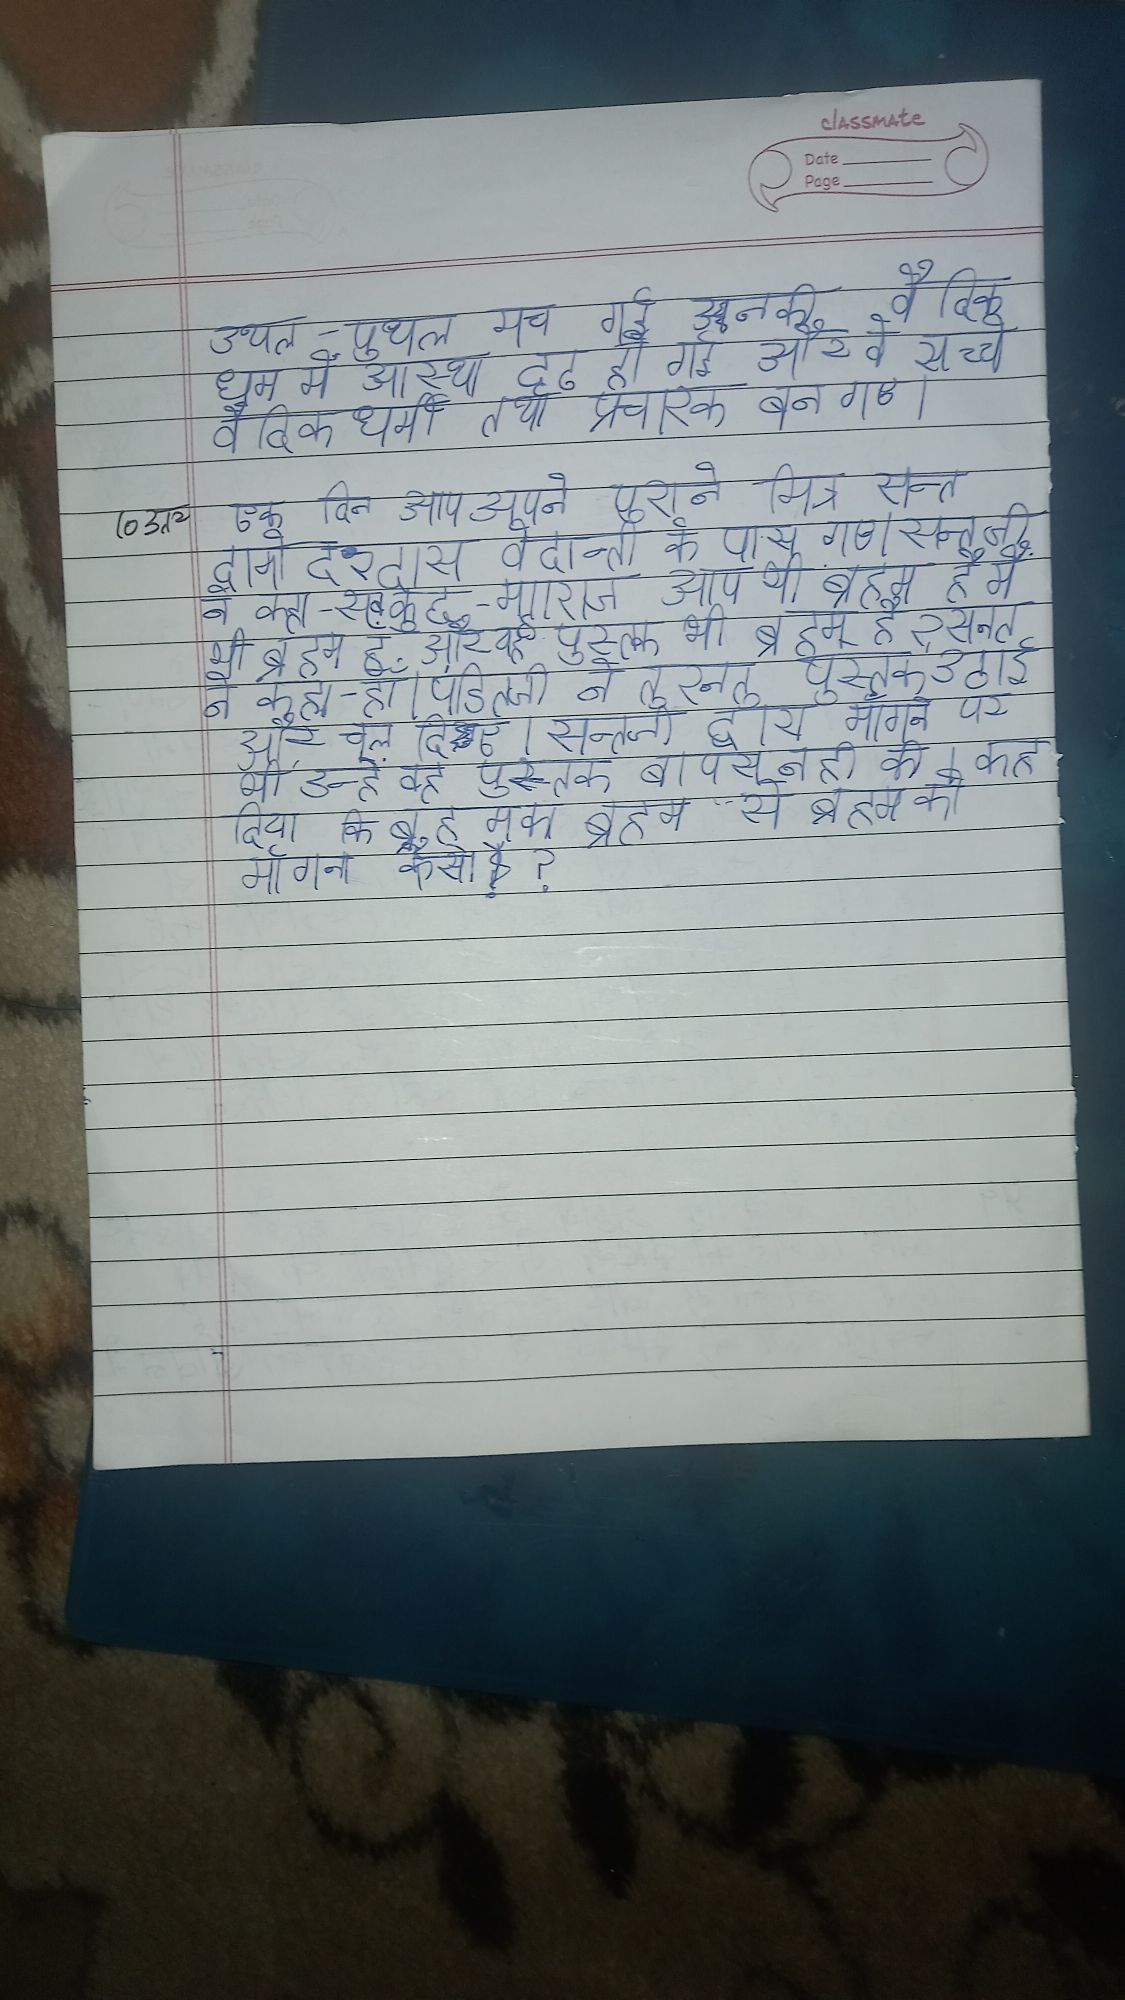 classmate
Date
Page
उथल-पुथल मच गई उनकी वैदिक
धर्म में आस्था दृढ हो गई और वे सच्चे
वैदिक धर्मी तथा प्रचारक बन गए।
10 उत्तर एक दिन आप अपने पुराने मित्र सन्त
दामोदरदास वेदान्ती के पास गए। सन्तजी
ने कहा - सब कुछ - आप भी ब्रह्म है मैं
भी ब्रह्म हूँ और वह पुस्तक भी ब्रह्म है, सनत
ने कहा - हाँ। पंडितजी ने तुरनत पुस्तक उठाई
और चल दिए। सन्तजी द्वारा माँगने पर
भी उन्हे वह पुस्तक वापस नही की। कह
दिया कि ब्रह्म का ब्रह्म से ब्रह्म को
माँगना कैसा है?